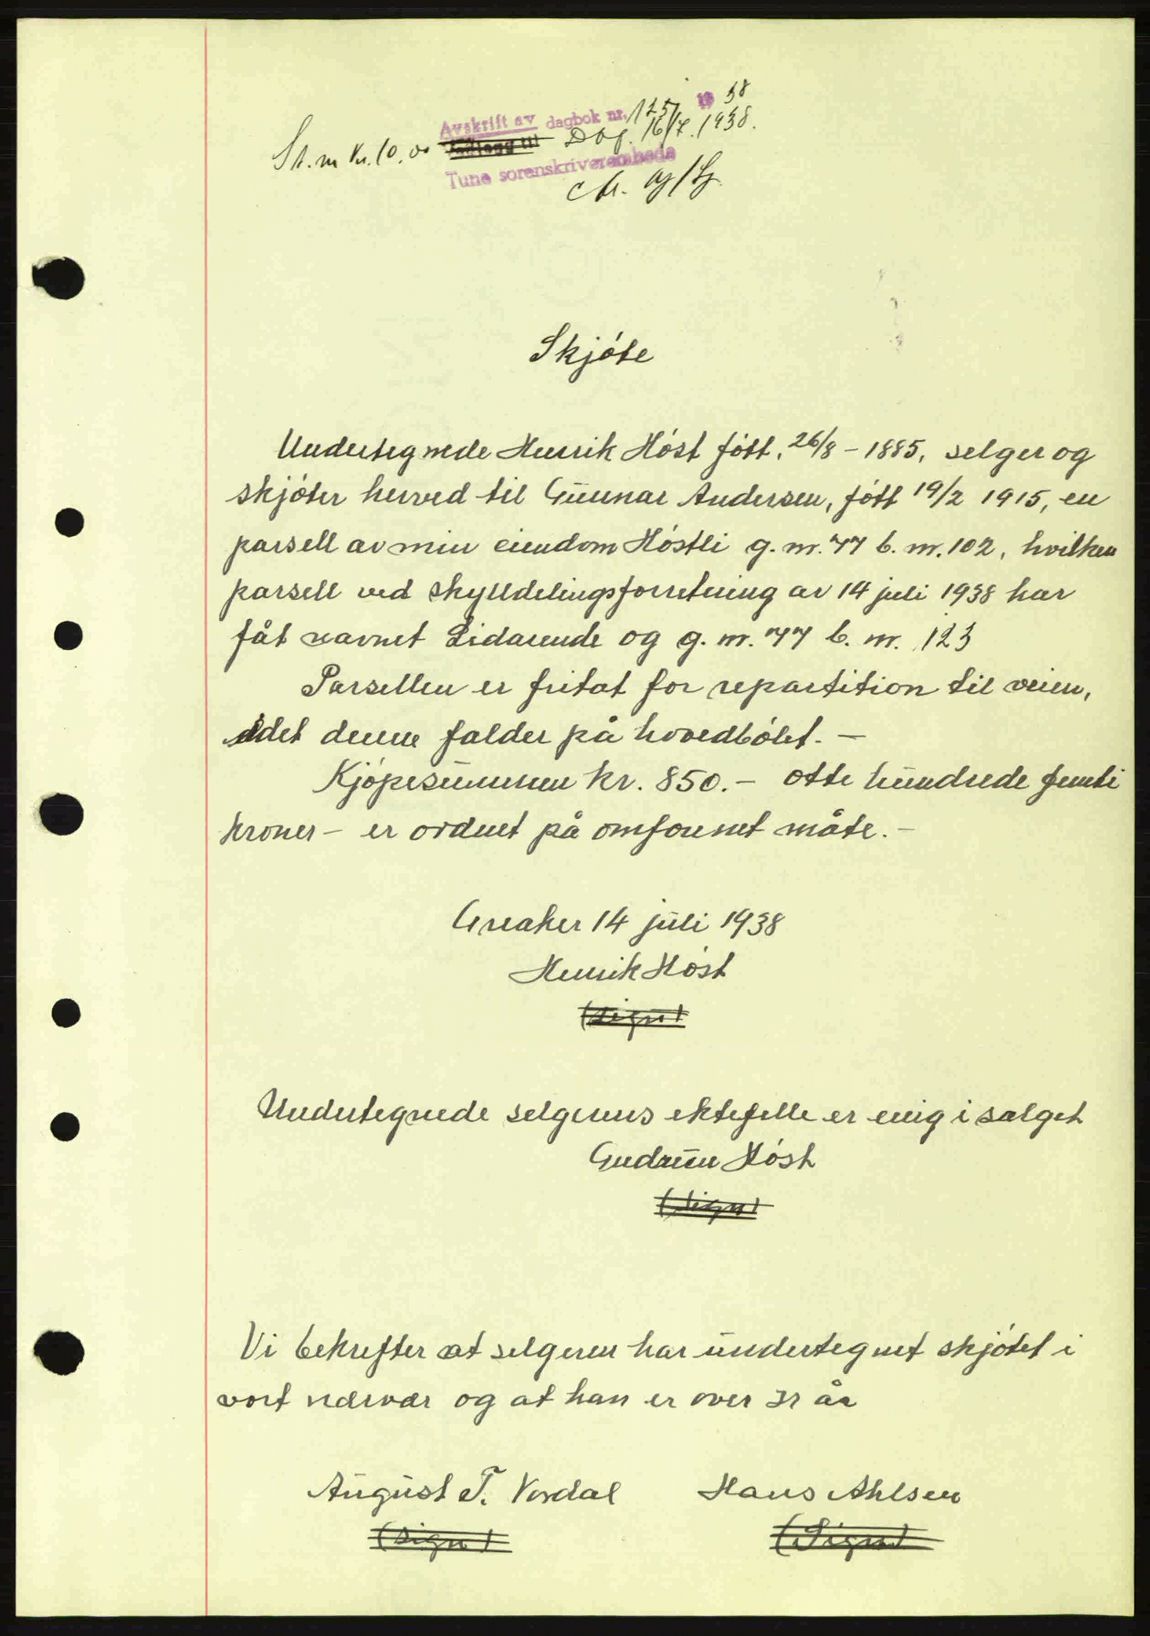 Avskrift av dagbok nr. 1257 1938
St.m kr. 10.00 Dbf. 16/7. 1938.
Tune sorenskriverembede
Skjöte
Undertegnede Henrik Höst fött. 26/8 - 1885, selger og
skjöter herved til Gunnar Andersen, fött 19/2 1915, en
parsell av min eiendom Höstli g. nr. 77 b. nr. 102, hvilken
parsell ved skylldelingsforretning av 14 juli 1938 har
fåt navnet Lidarende og g. nr. 77 b. nr. 123
Parsellen er fritat for repartition til veien,
idet denne falder på hovedbölet. -
Kjöpesummen kr. 850.- otte hundrede femti
kroner - er ordnet på omforenet måte. -
Greaker 14 juli 1938
Henrik Höst
(sign)
Undertegnede selgerens ektefelle er enig i salget
Gudrun Höst
(sign)
Vi bekrefter at selgeren har undertegnet skjötet i
vort nærvær og at han er over 21 år
August T. Vordal Hans Ahlsen
(sign) (Sign)